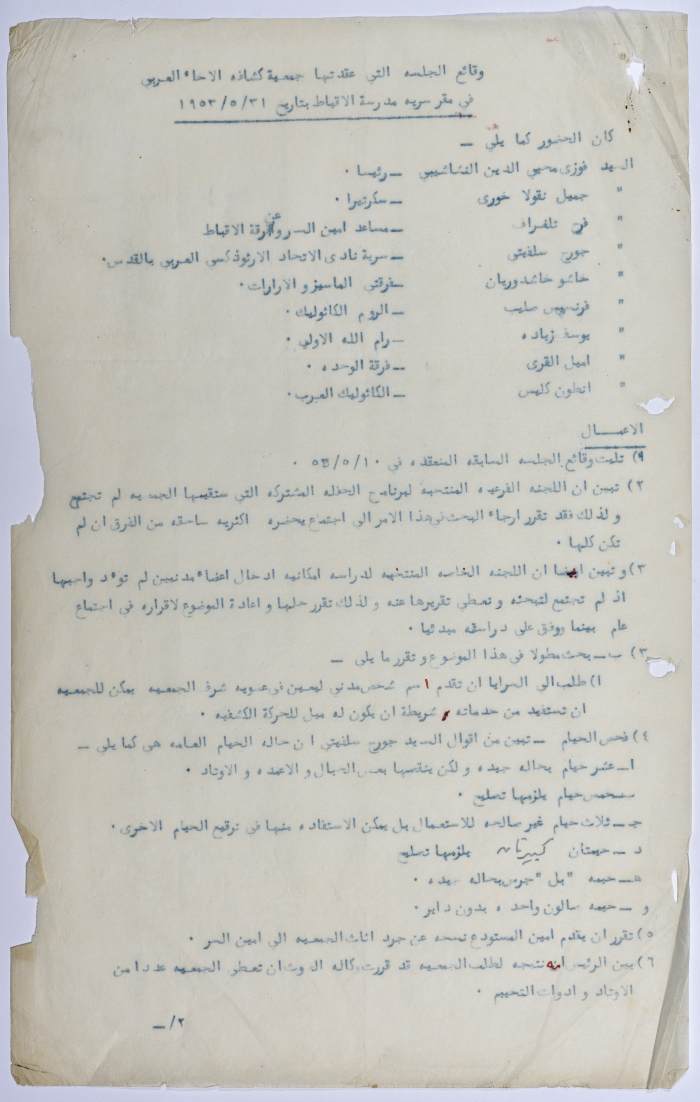 وقائع الجلسه التي عقدتها جمعية كشافه الاخاء العربي
في مقر سريه مدرسة الاقباط بتاريخ ١٩٥٣/٥/٣١
كان الحضور كما يلي —
السيد فوزى محيي الدين النشاشيبي — رئيسا ٠
" جميل نقولا خورى — سكرتيرا ٠
" فرج تلغراف — مساعد امين السر و عن فرقة الاقباط
" جورج سلفيتي — سرية نادى الاتحاد الارثوذكسي العربي بالقدس٠
" خاشو خاشدوريان — فرقتي الماسيز و الارارات ٠
" فرنسيس سليب — الروم الكاثوليك ٠
" يوسف زياده — رام الله الاولي ٠
" اميل القرى — فرقة الوحده ٠
" انطون كليس — الكاثوليك العرب ٠
الاعمــال
١) تليت وقائع الجلسه السابقه المنعقده في ٥٣/٥/١٠ ٠
٢) تبين ان اللجنه الفرعيه المنتخبه لبرنامج الحفله المشتركه التي ستقيمها الجمعيه لم تجتمع
و لذلك فقد تقرر ارجاء البحث في هذا الامر الى اجتماع يحضره اكثريه ساحقه من الفرق ان لم
تكن كلها ٠
٣) و تبين ايضا ان اللجنه الخاصه المنتخبه لدراسه امكانيه ادخال اعضاء مدنيين لم تؤد واجبها
اذ لم تجتمع لتبحثه و تعطي تقريرها عنه و لذلك تقرر حلها و اعادة الموضوع لاقراره في اجتماع
عام بينما ووفق على دراسته مبدئيا ٠
٣) ب — بحث مطولا في هذا الموضوع و تقرر ما يلي —
١) طلب الى السرايا ان تقدم اسم شخص مدني ليعين في عضويه شرف الجمعيه يمكن للجمعيه
ان تستفيد من خدماته شريطة ان يكون له ميل للحركة الكشفيه ٠
٤) فحص الخيام — تبين من اقوال السيد جورج سلفيتي ان حاله الخيام العامه هي كما يلي —
ا — عشر خيام بحاله جيده و لكن ينقصها بعض الحبال و الاعمده و الاوتاد ٠
ب — خمس خيام يلزمها تصليح ٠
جـ — ثلاث خيام غير صالحه للاستعمال بل يمكن الاستفاده منها في ترقيع الخيام الاخرى ٠
د — خيمتان كبيرتان يلزمها تصليح
هـ — خيمه "بل" جرس بحاله جيده ٠
و — خيمه صالون واحده بدون داير ٠
٥) تقرر ان يقدم امين المستودع نسخه عن جرد اثاث الجمعيه الى امين السر ٠
٦) بين الرئيس انه نتيجه لطلب الجمعيه قد قررت وكاله الغوث ان تعطي الجمعيه عددا من
الاوتاد و ادوات التخييم ٠
٢/—